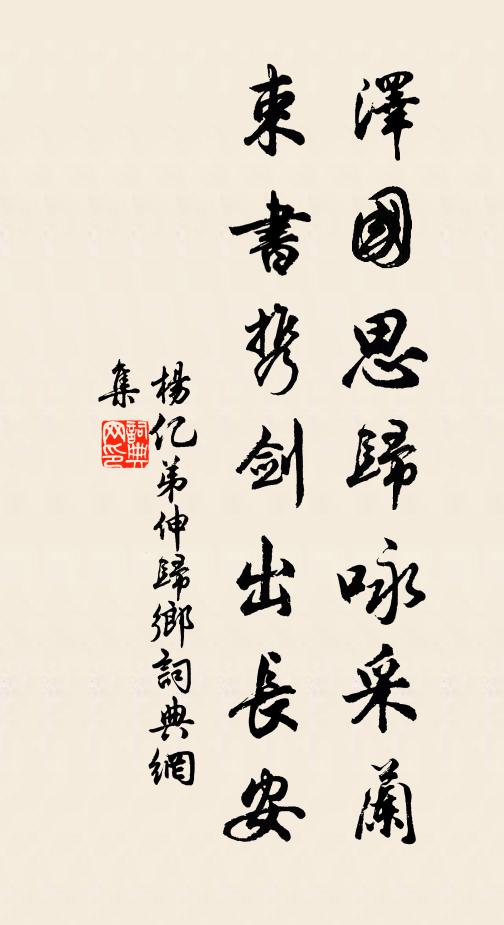 澤國思歸咏采蘭
束書携劍出長安
楊亿弟伸歸鄉詞典網
集
詞典
网印